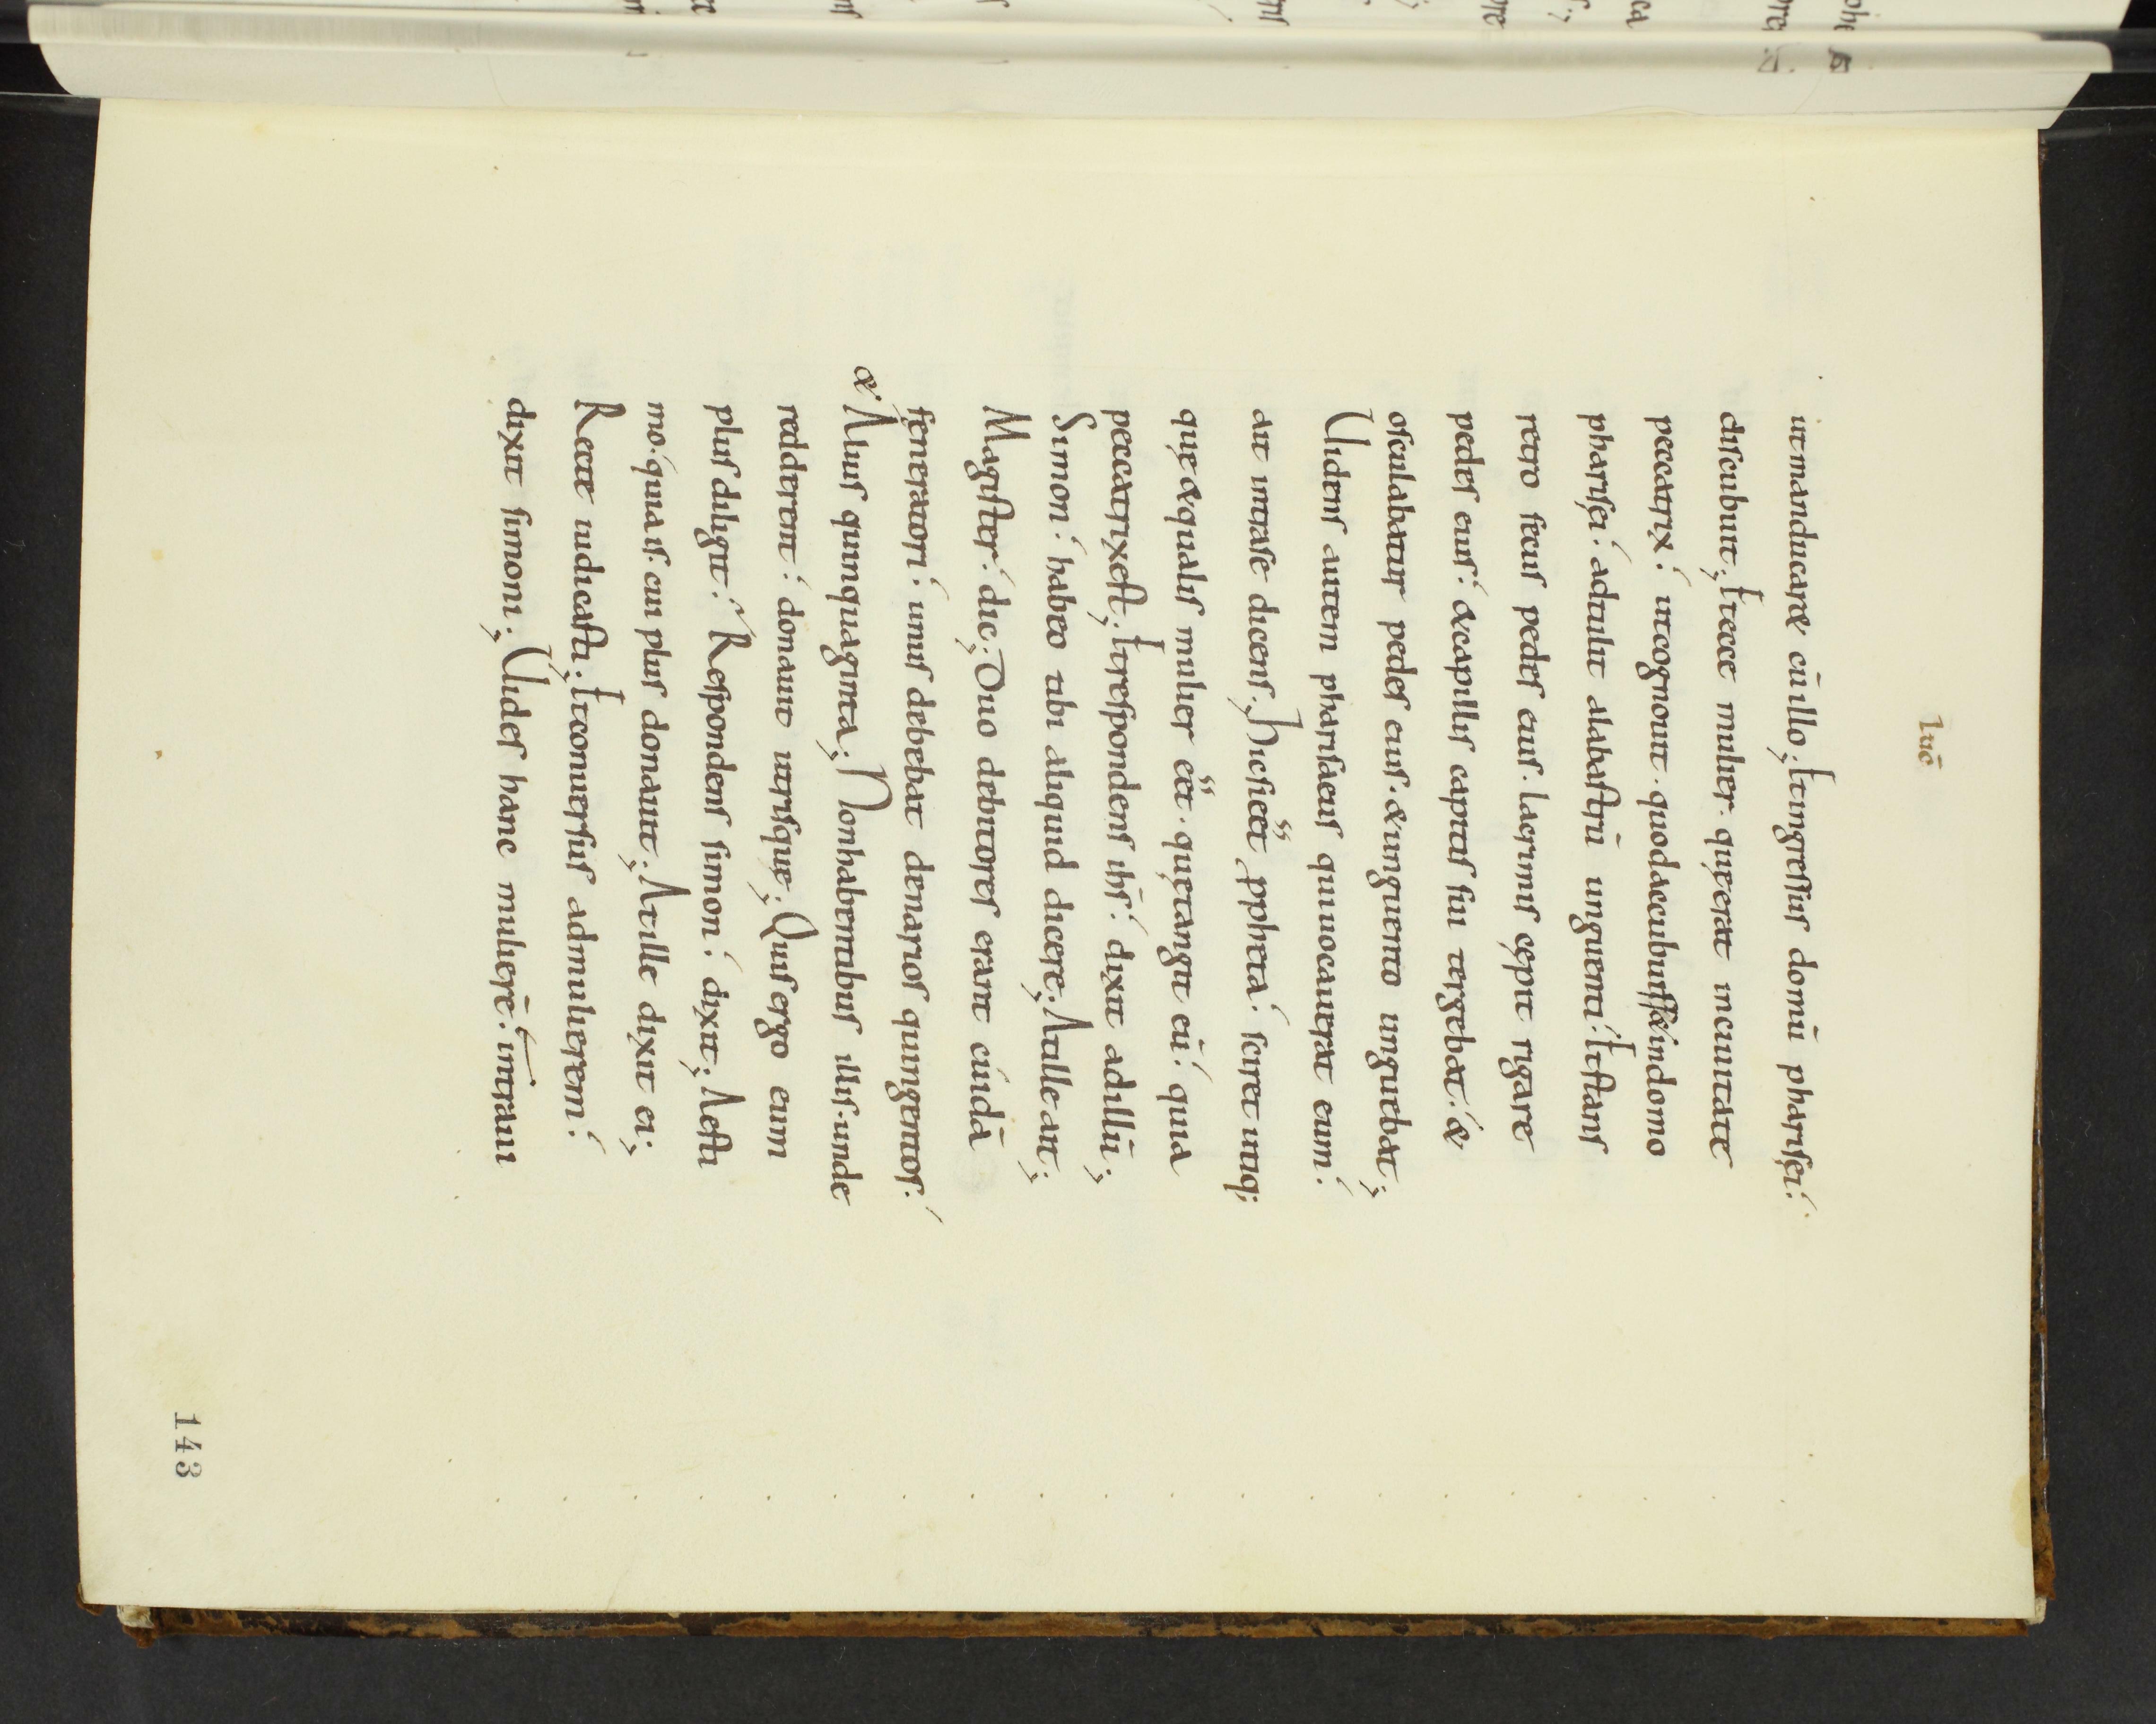 luc̄
ut manducar& cū illo; Et ingressus domū pharisęi:
discubuit; Et ecce mulier. quę erat in ciuitate
peccatrix: ut cognouit. quod accubuiss& in domo
pharisęi: adtulit alabastrū unguenti: Et stans
retro secus pedes eius. lacrimis cępit rigare
pedes eius: & capillis capitis sui tergebat: &
osculabatur pedes eius. & unguento unguebat;
Uidens autem pharisaeus qui uocauerat eum:
ait intra se dicens. Hic si eet ppheta: sciret utiq;
quę & qualis mulier eēt. quę tangit eū: quia
peccatrix est; Et respondens ihs̄: dixit ad illū;
Simon: habeo tibi aliquid dicere; At ille ait;
Magister: dic; Duo debitores erant cuidā
feneratori: unus debebat denarios quingentos:
& Alius quinquaginta; Non habentibus illis. unde
redderent: donauit utrisque; Quis ergo eum
plus diligit: Respondens simon: dixit; Aesti
mo: quia is. cui plus donauit; At ille dixit ei;
Recte iudicasti; Et conuersus ad mulierem:
dixit simoni; Uides hanc mulierē: intraui
143